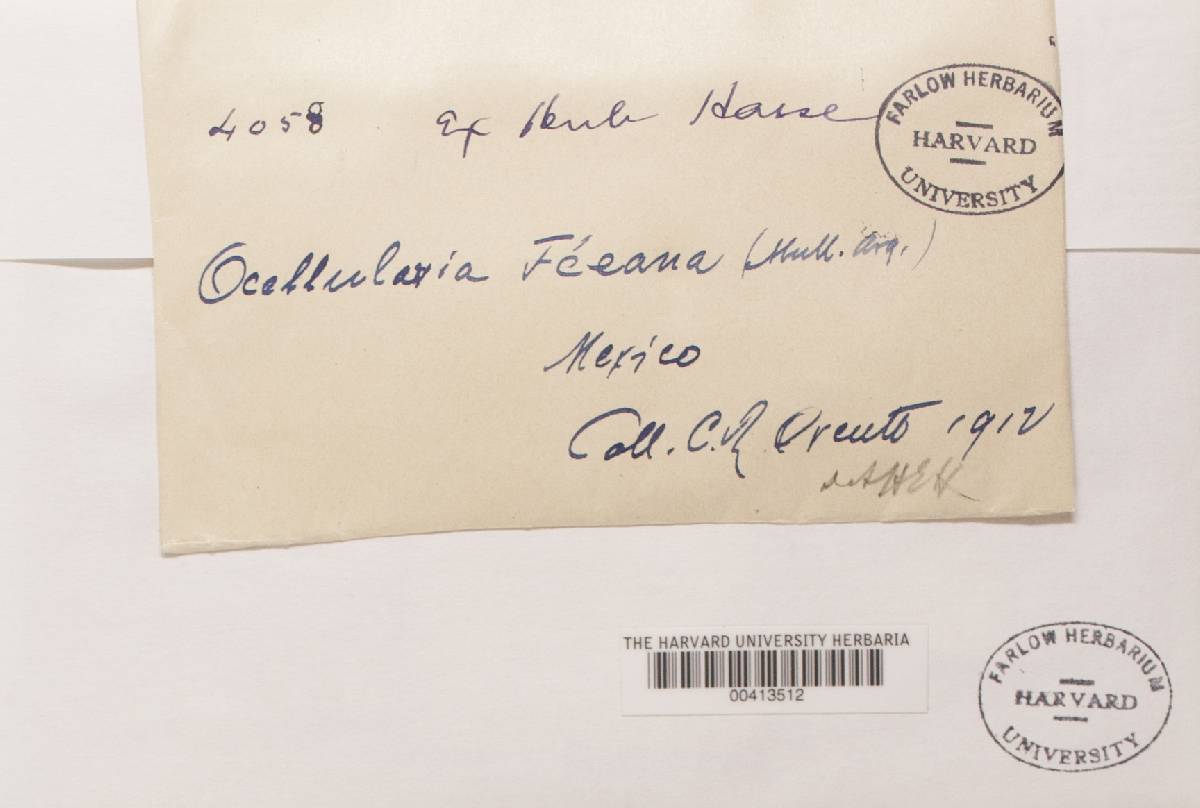 4058 Ex Herb Hasse
FARLOW HERBARIUM
HARVARD
UNIVERSITY
Ocellularia Féeana (Mull. Arg.)
Mexico
Coll. C.R. Orcutt 1912
THE HARVARD UNIVERSITY HERBARIA
00413512
FARLOW HERBARIUM
HARVARD
UNIVERSITY